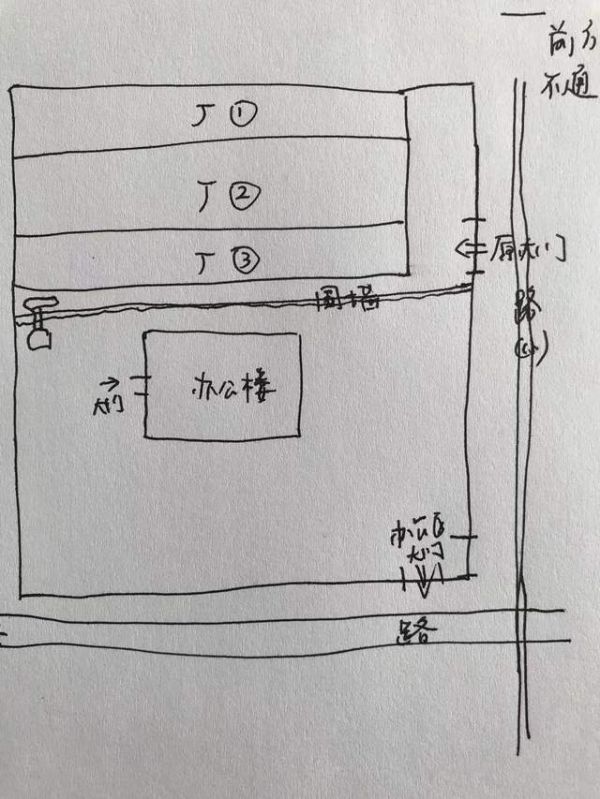 前方
不通
厂①
厂②
厂③
原大门
围墙
路
(小)
办公楼
大门
办公区
大门
路